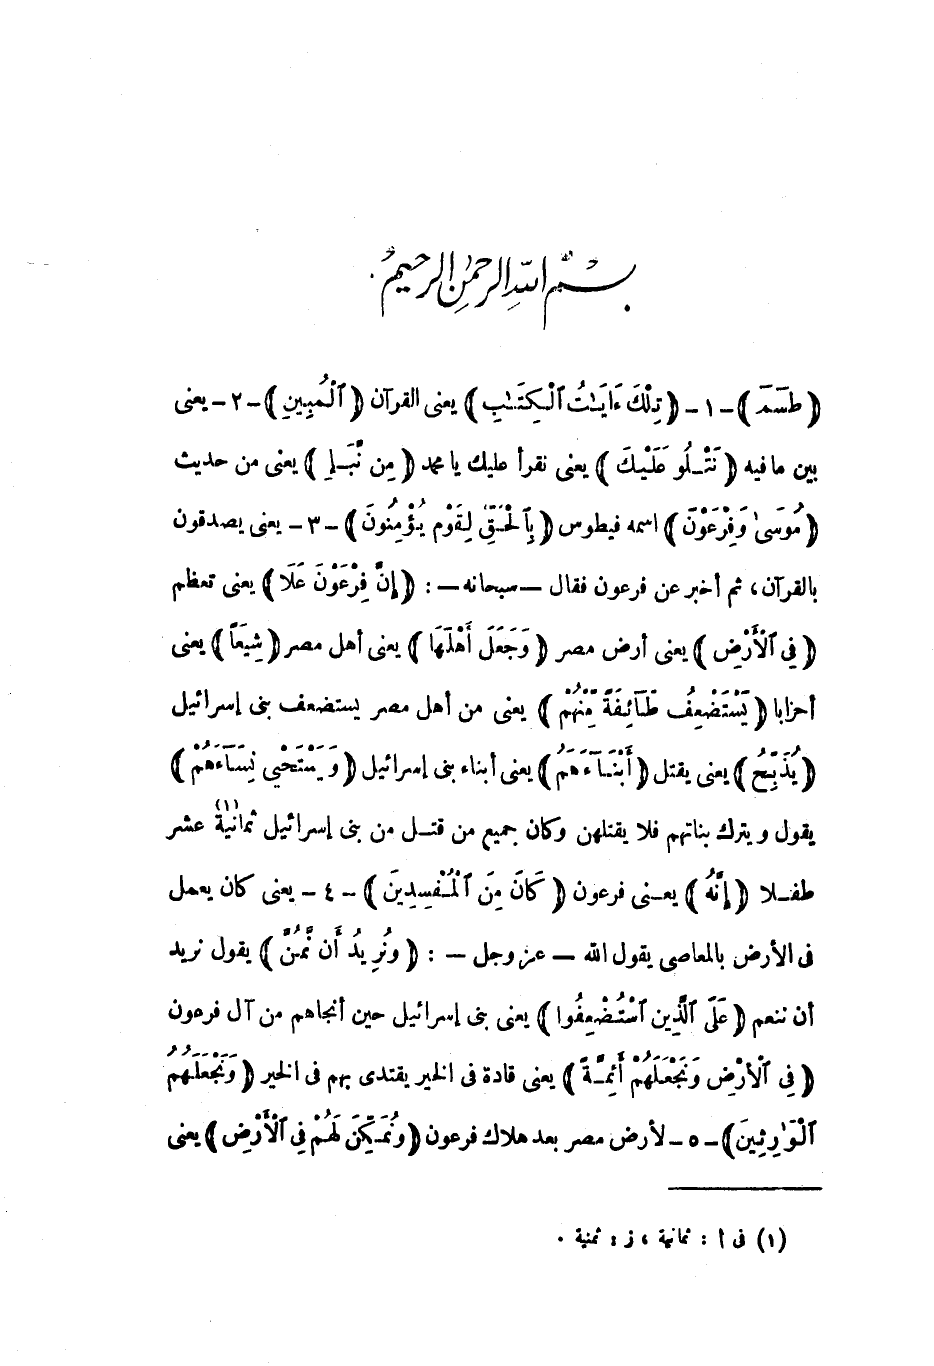 بسم الله الرحمن الرحيم
(طسٓمٓ) -١- (تِلْكَ ءَايَٰتُ ٱلْكِتَٰبِ) يعنى القرآن (ٱلْمُبِينِ) -٢- يعنى
بين ما فيه (نَتْلُو عَلَيْكَ) يعنى نقرأ عليك يا محمد (مِن نَّبَإِ) يعنى من حديث
(مُوسَىٰ وَفِرْعَوْنَ) اسمه فيطوس (بِٱلْحَقِّ لِقَوْمٍ يُؤْمِنُونَ) -٣- يعنى يصدقون
بالقرآن، ثم أخبر عن فرعون فقال — سبحانه — : (إِنَّ فِرْعَوْنَ عَلَا) يعنى تعظم
(فِى ٱلْأَرْضِ) يعنى أرض مصر (وَجَعَلَ أَهْلَهَا) يعنى أهل مصر (شِيَعًا) يعنى
أحزابا (يَسْتَضْعِفُ طَآئِفَةً مِّنْهُمْ) يعنى من أهل مصر يستضعف بنى إسرائيل
(يُذَبِّحُ) يعنى يقتل (أَبْنَآءَهُمْ) يعنى أبناء بنى إسرائيل (وَيَسْتَحْىِ نِسَآءَهُمْ)
يقول ويترك بناتهم فلا يقتلهن وكان جميع من قتل من بنى إسرائيل ثمانية (١) عشر
طفلا (إِنَّهُ) يعنى فرعون (كَانَ مِنَ ٱلْمُفْسِدِينَ) -٤- يعنى كان يعمل
فى الأرض بالمعاصى يقول الله — عز وجل — : (وَنُرِيدُ أَن نَّمُنَّ) يقول نريد
أن ننعم (عَلَى ٱلَّذِينَ ٱسْتُضْعِفُوا) يعنى بنى إسرائيل حين أنجاهم من آل فرعون
(فِى ٱلْأَرْضِ وَنَجْعَلَهُمْ أَئِمَّةً) يعنى قادة فى الخير يقتدى بهم فى الخير (وَنَجْعَلَهُمُ
ٱلْوَٰرِثِينَ) -٥- لأرض مصر بعد هلاك فرعون (وَنُمَكِّنَ لَهُمْ فِى ٱلْأَرْضِ) يعنى
(١) فى أ : ثمانية ، ز : ثمنية .